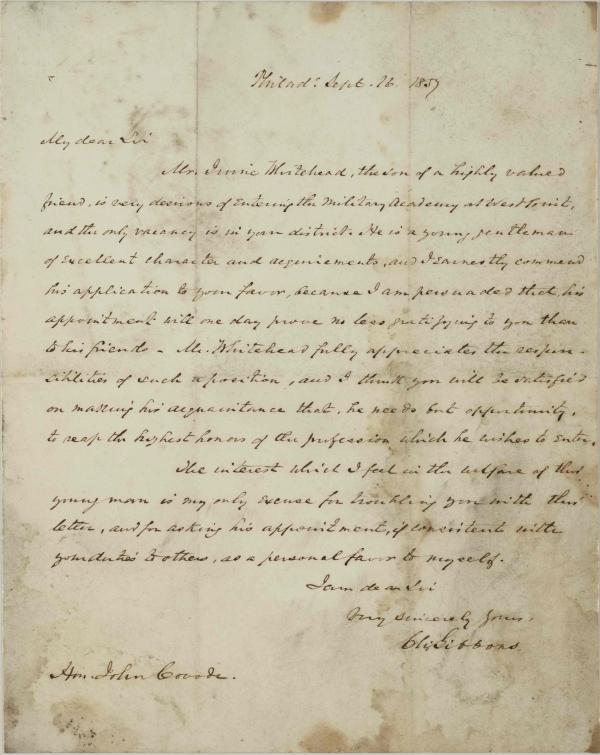 Philad: Sept. 26. 1857
My dear Sir
Mr. Irwin Whitehead, the son of a highly valued
friend, is very desirous of entering the Military Academy at West Point,
and the only vacancy is in your district. He is a young gentleman
of excellent character and acquirements, and I earnestly commend
his application to your favor, because I am persuaded that his
appointment will one day prove no less gratifying to you than
to his friends - Mr. Whitehead fully appreciates the respon-
sibilities of such a position, and I think you will be satisfied
on making his acquaintance that, he needs but opportunity,
to reap the highest honors of the profession which he wishes to enter.
The interest which I feel in the welfare of this
young man is my only excuse for troubling you with this
letter, and for asking his appointment, if consistent with
your duties to others, as a personal favor to myself.
I am dear Sir
Very sincerely yours,
Gibbons.
Hon. John Covode.